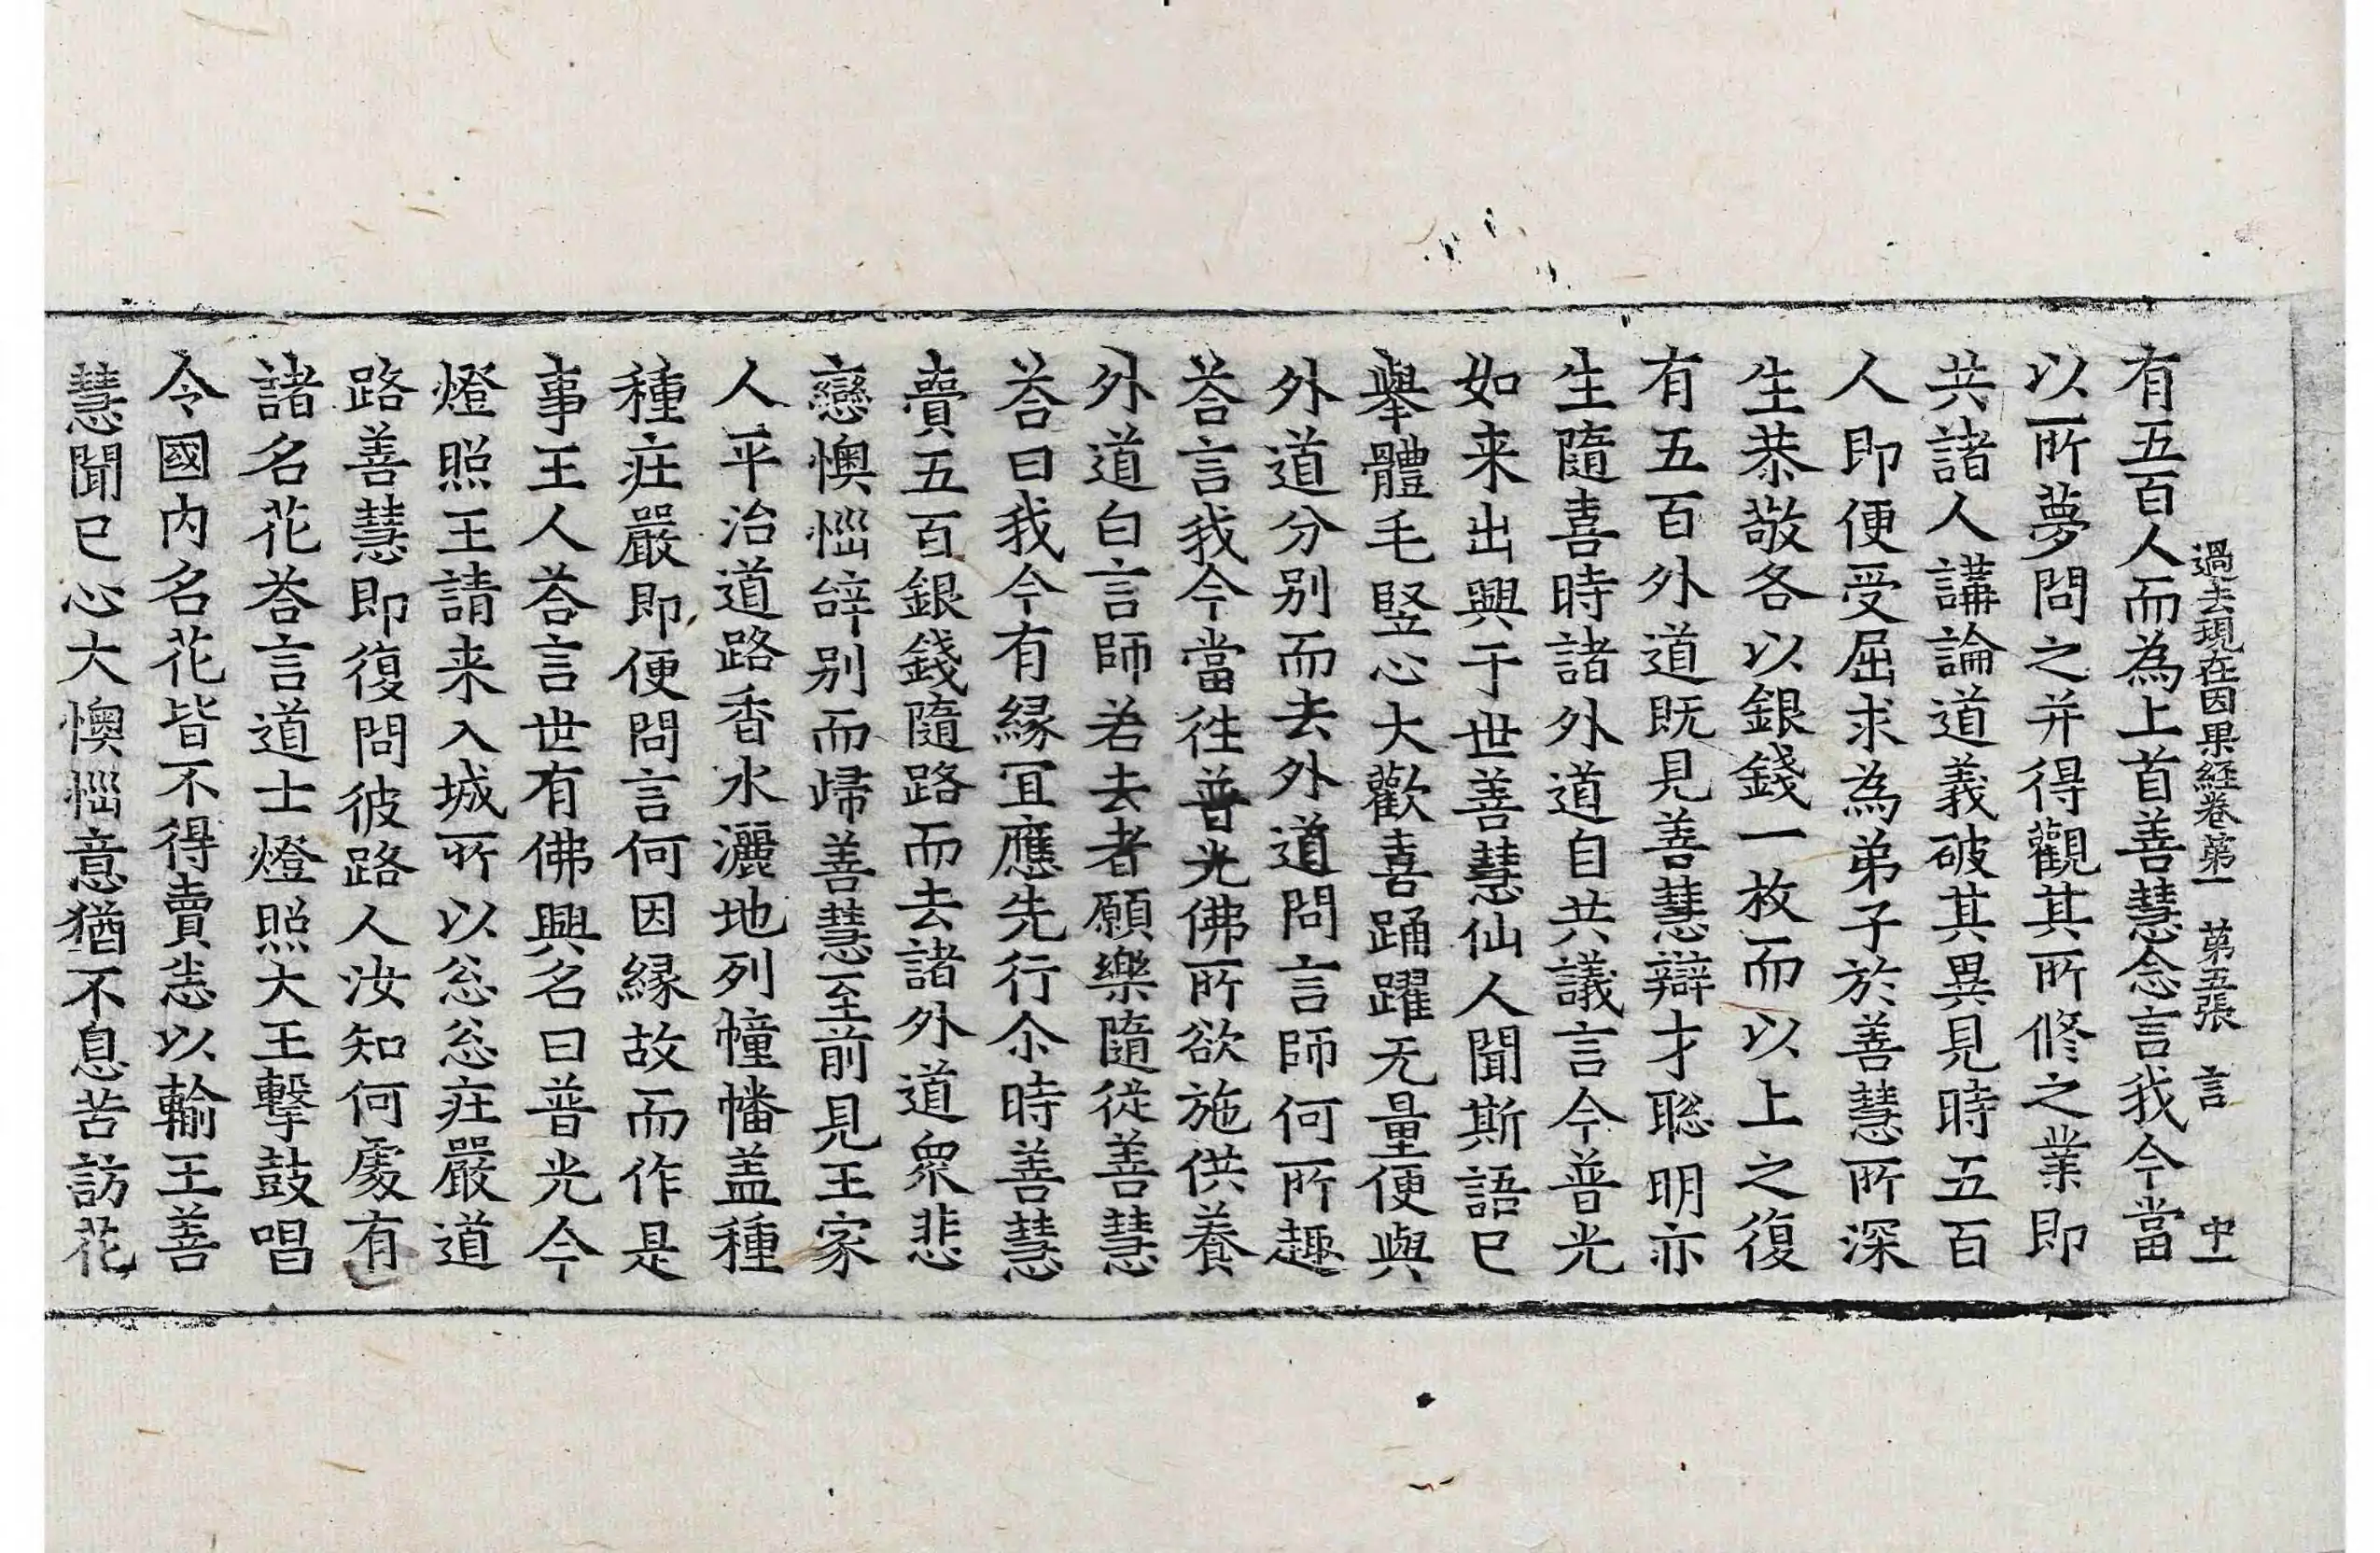 過去現在因果経卷第一 第五張 言 中一
有五百人而為上首善慧念言我今當
以所夢問之并得觀其所修之業即
共諸人講論道義破其異見時五百
人即便受屈求為弟子於善慧所深
生恭敬各以銀錢一枚而以上之復
有五百外道既見善慧辯才聡明亦
生隨喜時諸外道自共議言今普光
如来出興于世善慧仙人聞斯語已
舉體毛竪心大歡喜踊躍无量便與
外道分別而去外道問言師何所趣
荅言我今當往普光佛所欲施供養
外道白言師若去者願樂隨從善慧
荅曰我今有縁冝應先行尒時善慧
賣五百銀錢隨路而去諸外道衆悲
戀懊惱辝別而歸善慧至前見王家
人平治道路香水灑地列幢幡盖種
種莊嚴即便問言何因縁故而作是
事王人荅言世有佛興名曰普光今
燈照王請来入城所以忩忩莊嚴道
路善慧即復問彼路人汝知何處有
諸名花荅言道士燈照大王擊鼓唱
令國内名花皆不得賣悉以輸王善
慧聞已心大懊惱意猶不息苦訪花